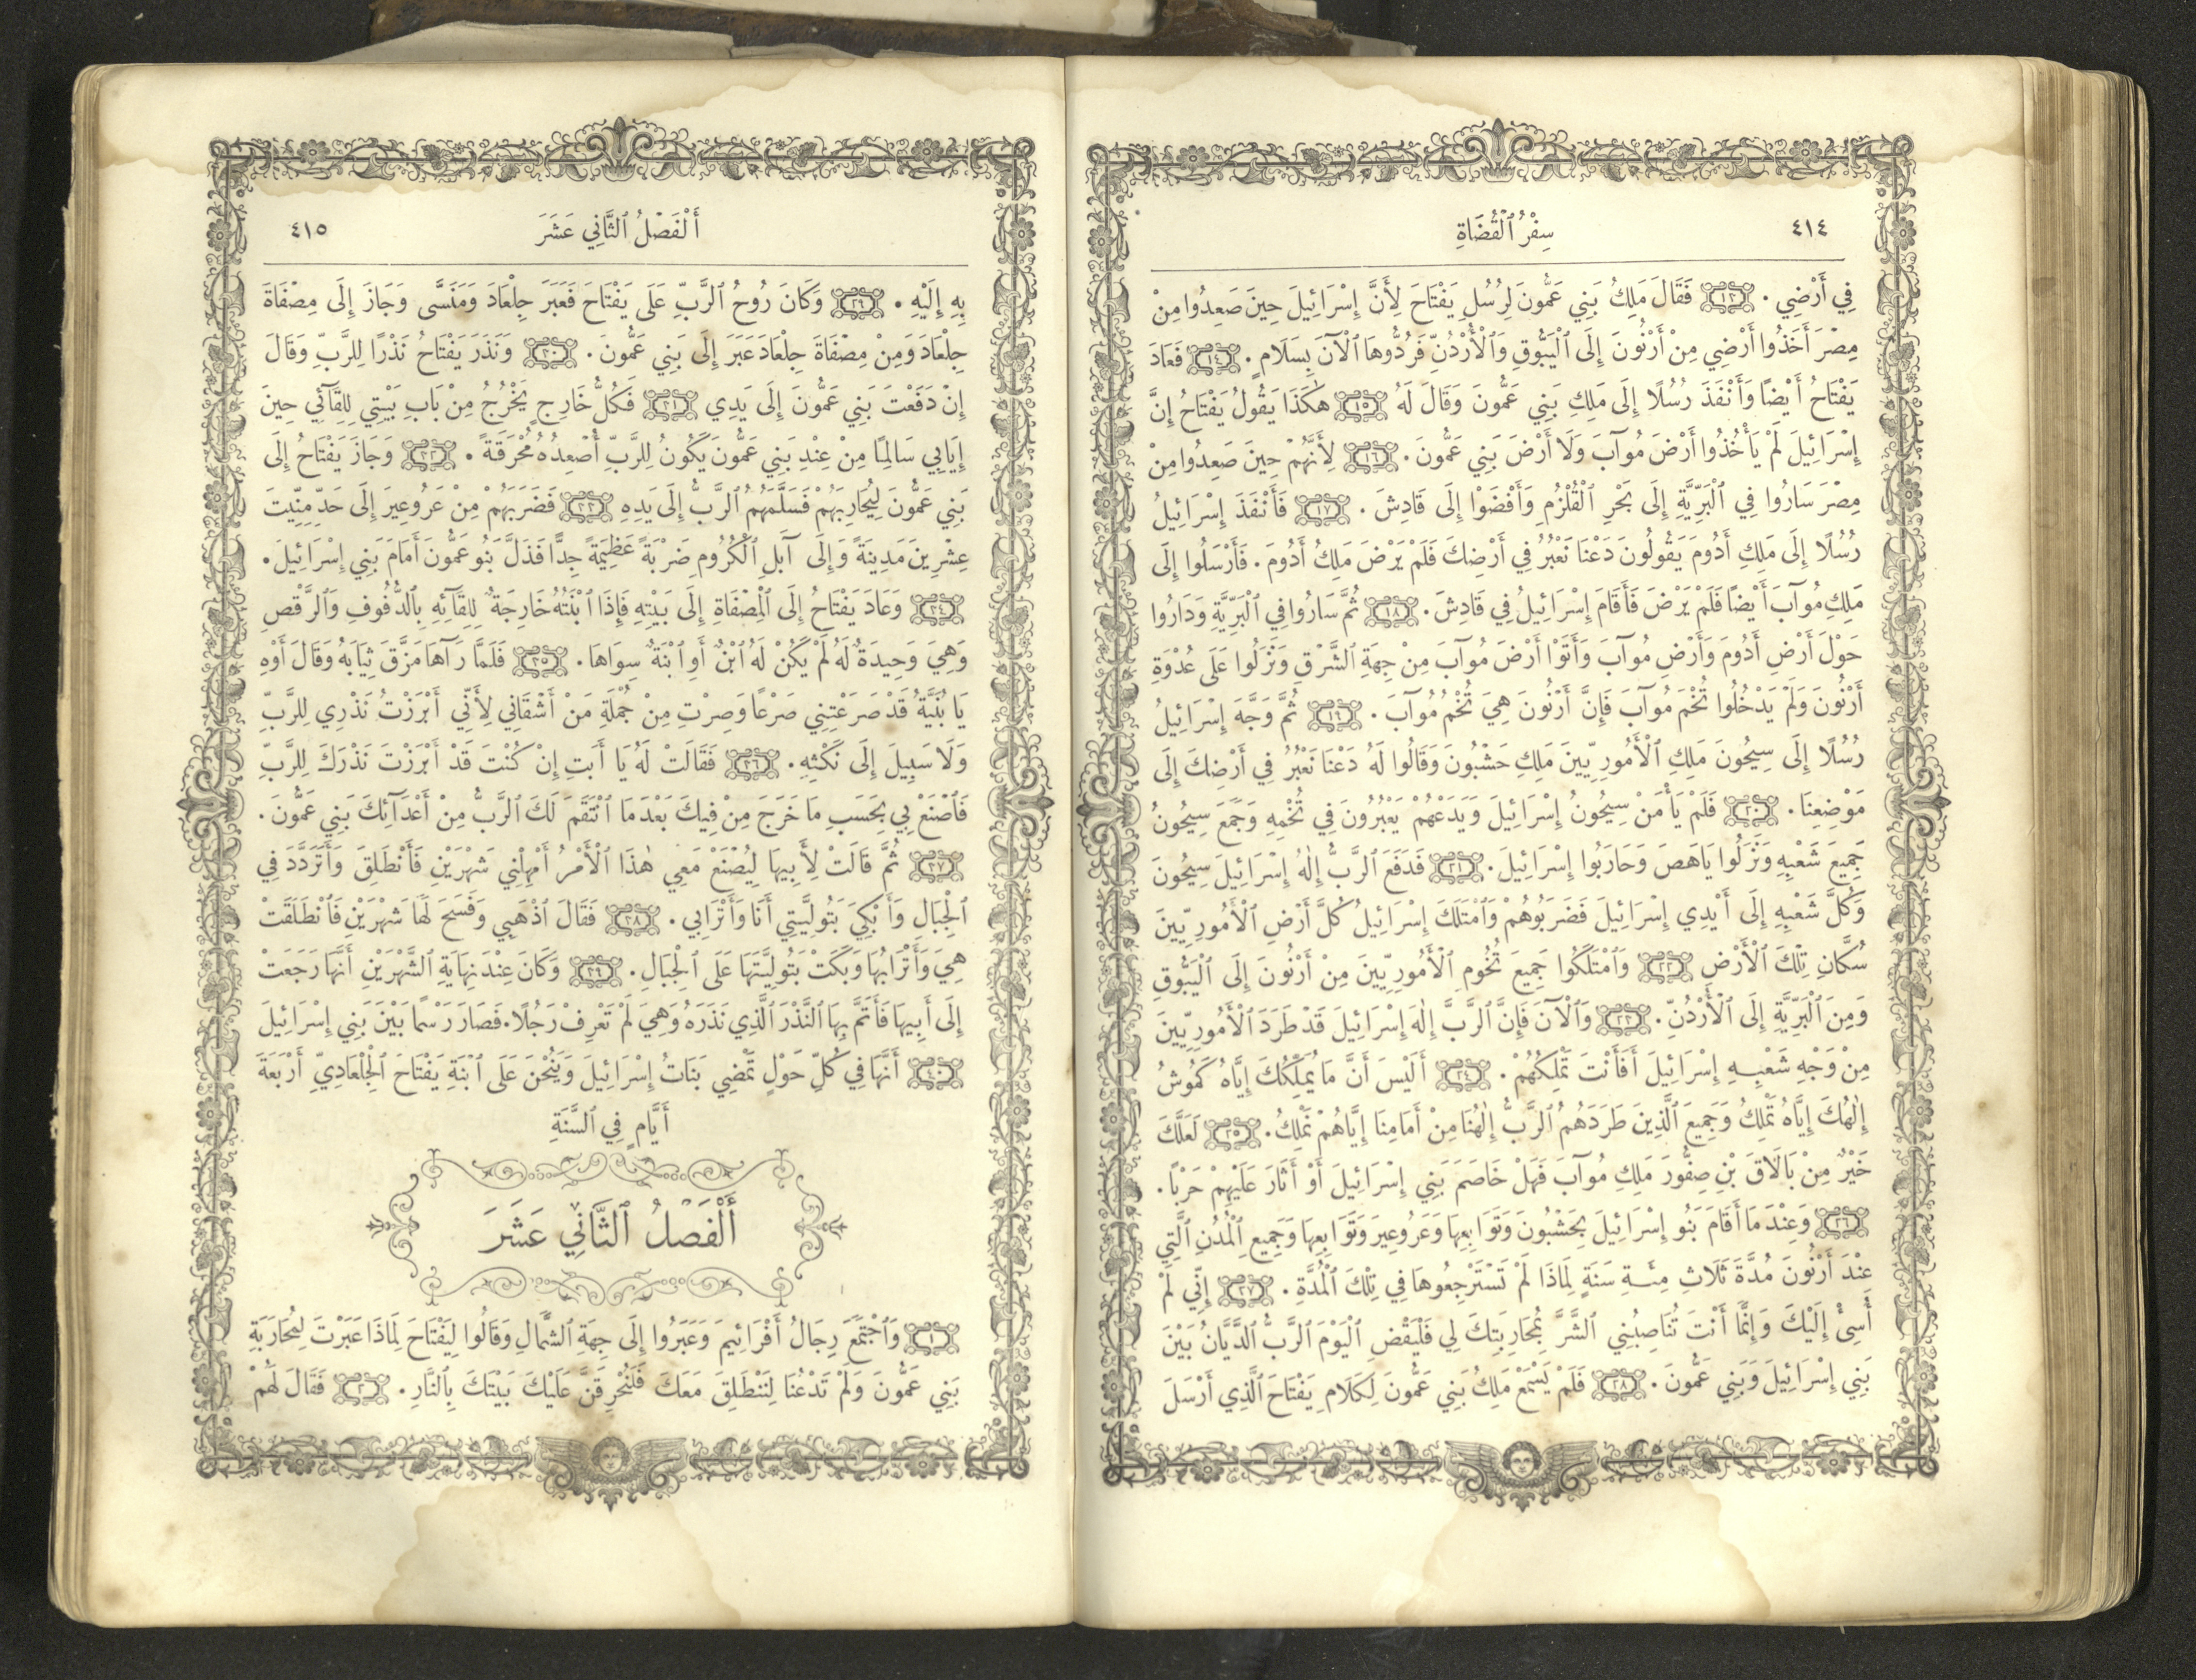 ٤١٤
سِفْرُ ٱلْقُضَاةِ
فِي أَرْضِي . ١٣ فَقَالَ مَلِكُ بَنِي عَمُّونَ لِرُسُلِ يَفْتَاحَ لِأَنَّ إِسْرَائِيلَ حِينَ صَعِدُوا مِنْ
مِصْرَ أَخَذُوا أَرْضِي مِنْ أَرْنُونَ إِلَى ٱلْيَبُّوقِ وَٱلْأُرْدُنِّ فَرُدُّوهَا ٱلْآنَ بِسَلَامٍ . ١٤ فَعَادَ
يَفْتَاحُ أَيْضًا وَأَنْفَذَ رُسُلًا إِلَى مَلِكِ بَنِي عَمُّونَ وَقَالَ لَهُ ١٥ هٰكَذَا يَقُولُ يَفْتَاحُ إِنَّ
إِسْرَائِيلَ لَمْ يَأْخُذُوا أَرْضَ مُوآبَ وَلَا أَرْضَ بَنِي عَمُّونَ . ١٦ لِأَنَّهُمْ حِينَ صَعِدُوا مِنْ
مِصْرَ سَارُوا فِي ٱلْبَرِّيَّةِ إِلَى بَحْرِ ٱلْقُلْزُمِ وَأَفْضَوْا إِلَى قَادِشَ . ١٧ فَأَنْفَذَ إِسْرَائِيلُ
رُسُلًا إِلَى مَلِكِ أَدُومَ يَقُولُونَ دَعْنَا نَعْبُرُ فِي أَرْضِكَ فَلَمْ يَرْضَ مَلِكُ أَدُومَ . فَأَرْسَلُوا إِلَى
مَلِكِ مُوآبَ أَيْضًا فَلَمْ يَرْضَ فَأَقَامَ إِسْرَائِيلُ فِي قَادِشَ . ١٨ ثُمَّ سَارُوا فِي ٱلْبَرِّيَّةِ وَدَارُوا
حَوْلَ أَرْضِ أَدُومَ وَأَرْضِ مُوآبَ وَأَتَوْا أَرْضَ مُوآبَ مِنْ جِهَةِ ٱلشَّرْقِ وَنَزَلُوا عَلَى عُدْوَةِ
أَرْنُونَ وَلَمْ يَدْخُلُوا تُخْمَ مُوآبَ فَإِنَّ أَرْنُونَ هِيَ تُخْمُ مُوآبَ . ١٩ ثُمَّ وَجَّهَ إِسْرَائِيلُ
رُسُلًا إِلَى سِيحُونَ مَلِكِ ٱلْأَمُورِيِّينَ مَلِكِ حَشْبُونَ وَقَالُوا لَهُ دَعْنَا نَعْبُرُ فِي أَرْضِكَ إِلَى
مَوْضِعِنَا . ٢٠ فَلَمْ يَأْمَنْ سِيحُونُ إِسْرَائِيلَ وَيَدَعْهُمْ يَعْبُرُونَ فِي تُخْمِهِ وَجَمَعَ سِيحُونُ
جَمِيعَ شَعْبِهِ وَنَزَلُوا يَاهَصَ وَحَارَبُوا إِسْرَائِيلَ . ٢١ فَدَفَعَ ٱلرَّبُّ إِلٰهُ إِسْرَائِيلَ سِيحُونَ
وَكُلَّ شَعْبِهِ إِلَى أَيْدِي إِسْرَائِيلَ فَضَرَبُوهُمْ وَٱمْتَلَكَ إِسْرَائِيلُ كُلَّ أَرْضِ ٱلْأَمُورِيِّينَ
سُكَّانِ تِلْكَ ٱلْأَرْضِ ٢٢ وَٱمْتَلَكُوا جَمِيعَ تُخُومِ ٱلْأَمُورِيِّينَ مِنْ أَرْنُونَ إِلَى ٱلْيَبُّوقِ
وَمِنَ ٱلْبَرِّيَّةِ إِلَى ٱلْأُرْدُنِّ . ٢٣ وَٱلْآنَ فَإِنَّ ٱلرَّبَّ إِلٰهَ إِسْرَائِيلَ قَدْ طَرَدَ ٱلْأَمُورِيِّينَ
مِنْ وَجْهِ شَعْبِهِ إِسْرَائِيلَ أَفَأَنْتَ تَمْلِكُهُمْ . ٢٤ أَلَيْسَ أَنَّ مَا يُمَلِّكُكَ إِيَّاهُ كَمُوشُ
إِلٰهُكَ إِيَّاهُ تَمْلِكُ وَجَمِيعَ ٱلَّذِينَ طَرَدَهُمُ ٱلرَّبُّ إِلٰهُنَا مِنْ أَمَامِنَا إِيَّاهُمْ نَمْلِكُ . ٢٥ لَعَلَّكَ
خَيْرٌ مِنْ بَالَاقَ بْنِ صِفُّورَ مَلِكِ مُوآبَ فَهَلْ خَاصَمَ بَنِي إِسْرَائِيلَ أَوْ أَثَارَ عَلَيْهِمْ حَرْبًا .
٢٦ وَعِنْدَ مَا أَقَامَ بَنُو إِسْرَائِيلَ بِحَشْبُونَ وَتَوَابِعِهَا وَعَرُوعِيرَ وَتَوَابِعِهَا وَجَمِيعِ ٱلْمُدُنِ ٱلَّتِي
عِنْدَ أَرْنُونَ مُدَّةَ ثَلَاثِ مِئَةِ سَنَةٍ لِمَاذَا لَمْ تَسْتَرْجِعُوهَا فِي تِلْكَ ٱلْمُدَّةِ . ٢٧ إِنِّي لَمْ
أُسِئْ إِلَيْكَ وَإِنَّمَا أَنْتَ تُنَاصِبُنِي ٱلشَّرَّ بِمُحَارَبَتِكَ لِي فَلْيَقْضِ ٱلْيَوْمَ ٱلرَّبُّ ٱلدَّيَّانُ بَيْنَ
بَنِي إِسْرَائِيلَ وَبَنِي عَمُّونَ . ٢٨ فَلَمْ يَسْمَعْ مَلِكُ بَنِي عَمُّونَ لِكَلَامِ يَفْتَاحَ ٱلَّذِي أَرْسَلَ
أَلْفَصْلُ ٱلثَّانِي عَشَرَ
٤١٥
بِهِ إِلَيْهِ . ٢٩ وَكَانَ رُوحُ ٱلرَّبِّ عَلَى يَفْتَاحَ فَعَبَرَ جِلْعَادَ وَمَنَسَّى وَجَازَ إِلَى مِصْفَاةَ
جِلْعَادَ وَمِنْ مِصْفَاةَ جِلْعَادَ عَبَرَ إِلَى بَنِي عَمُّونَ . ٣٠ وَنَذَرَ يَفْتَاحُ نَذْرًا لِلرَّبِّ وَقَالَ
إِنْ دَفَعْتَ بَنِي عَمُّونَ إِلَى يَدِي ٣١ فَكُلُّ خَارِجٍ يَخْرُجُ مِنْ بَابِ بَيْتِي لِلِقَآئِي حِينَ
إِيَابِي سَالِمًا مِنْ عِنْدِ بَنِي عَمُّونَ يَكُونُ لِلرَّبِّ أُصْعِدُهُ مُحْرَقَةً . ٣٢ وَجَازَ يَفْتَاحُ إِلَى
بَنِي عَمُّونَ لِيُحَارِبَهُمْ فَسَلَّمَهُمُ ٱلرَّبُّ إِلَى يَدِهِ ٣٣ فَضَرَبَهُمْ مِنْ عَرُوعِيرَ إِلَى حَدِّ مِنِّيتَ
عِشْرِينَ مَدِينَةً وَإِلَى آبَلِ ٱلْكُرُومِ ضَرْبَةً عَظِيمَةً جِدًّا فَذَلَّ بَنُو عَمُّونَ أَمَامَ بَنِي إِسْرَائِيلَ .
٣٤ وَعَادَ يَفْتَاحُ إِلَى ٱلْمِصْفَاةِ إِلَى بَيْتِهِ فَإِذَا ٱبْنَتُهُ خَارِجَةٌ لِلِقَآئِهِ بِٱلدُّفُوفِ وَٱلرَّقْصِ
وَهِيَ وَحِيدَةٌ لَهُ لَمْ يَكُنْ لَهُ ٱبْنٌ أَوِ ٱبْنَةٌ سِوَاهَا . ٣٥ فَلَمَّا رَآهَا مَزَّقَ ثِيَابَهُ وَقَالَ أَوْهِ
يَا بُنَيَّةُ قَدْ صَرَعْتِنِي صَرْعًا وَصِرْتِ مِنْ جُمْلَةِ مَنْ أَشْقَانِي لِأَنِّي أَبْرَزْتُ نَذْرِي لِلرَّبِّ
وَلَا سَبِيلَ إِلَى نَكْثِهِ . ٣٦ فَقَالَتْ لَهُ يَا أَبَتِ إِنْ كُنْتَ قَدْ أَبْرَزْتَ نَذْرَكَ لِلرَّبِّ
فَٱصْنَعْ بِي بِحَسَبِ مَا خَرَجَ مِنْ فِيكَ بَعْدَ مَا ٱنْتَقَمَ لَكَ ٱلرَّبُّ مِنْ أَعْدَآئِكَ بَنِي عَمُّونَ .
٣٧ ثُمَّ قَالَتْ لِأَبِيهَا لِيُصْنَعْ مَعِي هٰذَا ٱلْأَمْرُ أَمْهِلْنِي شَهْرَيْنِ فَأَنْطَلِقَ وَأَتَرَدَّدَ فِي
ٱلْجِبَالِ وَأَبْكِيَ بَتُولِيَّتِي أَنَا وَأَتْرَابِي . ٣٨ فَقَالَ ٱذْهَبِي وَفَسَحَ لَهَا شَهْرَيْنِ فَٱنْطَلَقَتْ
هِيَ وَأَتْرَابُهَا وَبَكَتْ بَتُولِيَّتَهَا عَلَى ٱلْجِبَالِ . ٣٩ وَكَانَ عِنْدَ نِهَايَةِ ٱلشَّهْرَيْنِ أَنَّهَا رَجَعَتْ
إِلَى أَبِيهَا فَأَتَمَّ بِهَا ٱلنَّذْرَ ٱلَّذِي نَذَرَهُ وَهِيَ لَمْ تَعْرِفْ رَجُلًا . فَصَارَ رَسْمًا بَيْنَ بَنِي إِسْرَائِيلَ
٤٠ أَنَّهَا فِي كُلِّ حَوْلٍ تَمْضِي بَنَاتُ إِسْرَائِيلَ وَيَنُحْنَ عَلَى ٱبْنَةِ يَفْتَاحَ ٱلْجِلْعَادِيِّ أَرْبَعَةَ
أَيَّامٍ فِي ٱلسَّنَةِ
أَلْفَصْلُ ٱلثَّانِي عَشَرَ
١ وَٱجْتَمَعَ رِجَالُ أَفْرَائِيمَ وَعَبَرُوا إِلَى جِهَةِ ٱلشَّمَالِ وَقَالُوا لِيَفْتَاحَ لِمَاذَا عَبَرْتَ لِمُحَارَبَةِ
بَنِي عَمُّونَ وَلَمْ تَدْعُنَا لِنَنْطَلِقَ مَعَكَ فَلَنُحْرِقَنَّ عَلَيْكَ بَيْتَكَ بِٱلنَّارِ . ٢ فَقَالَ لَهُمْ